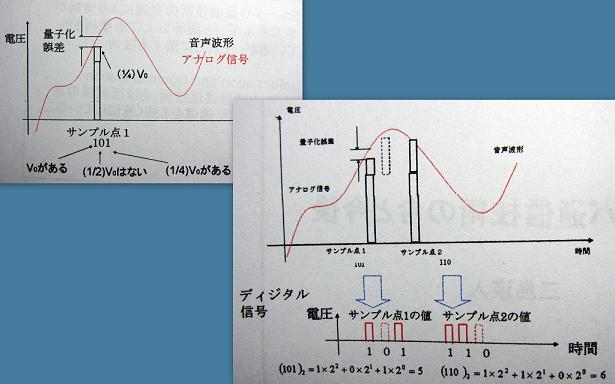 電圧
量子化
誤差
(¼)V₀
音声波形
アナログ信号
サンプル点1
101
V₀がある
(1/2)V₀はない
(1/4)V₀がある
電圧
量子化誤差
音声波形
アナログ信号
サンプル点1
サンプル点2
時間
101
110
ディジタル
信号
電圧
サンプル点1の値
サンプル点2の値
時間
1 0 1
1 1 0
(101)₂=1×2²+0×2¹+1×2⁰=5
(110)₂=1×2²+1×2¹+0×2⁰=6